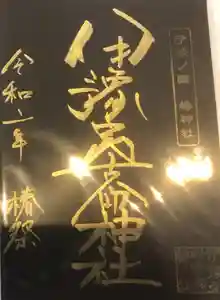 伊予ノ國 椿神社
伊豫豆比古命神社
令和二年 椿祭